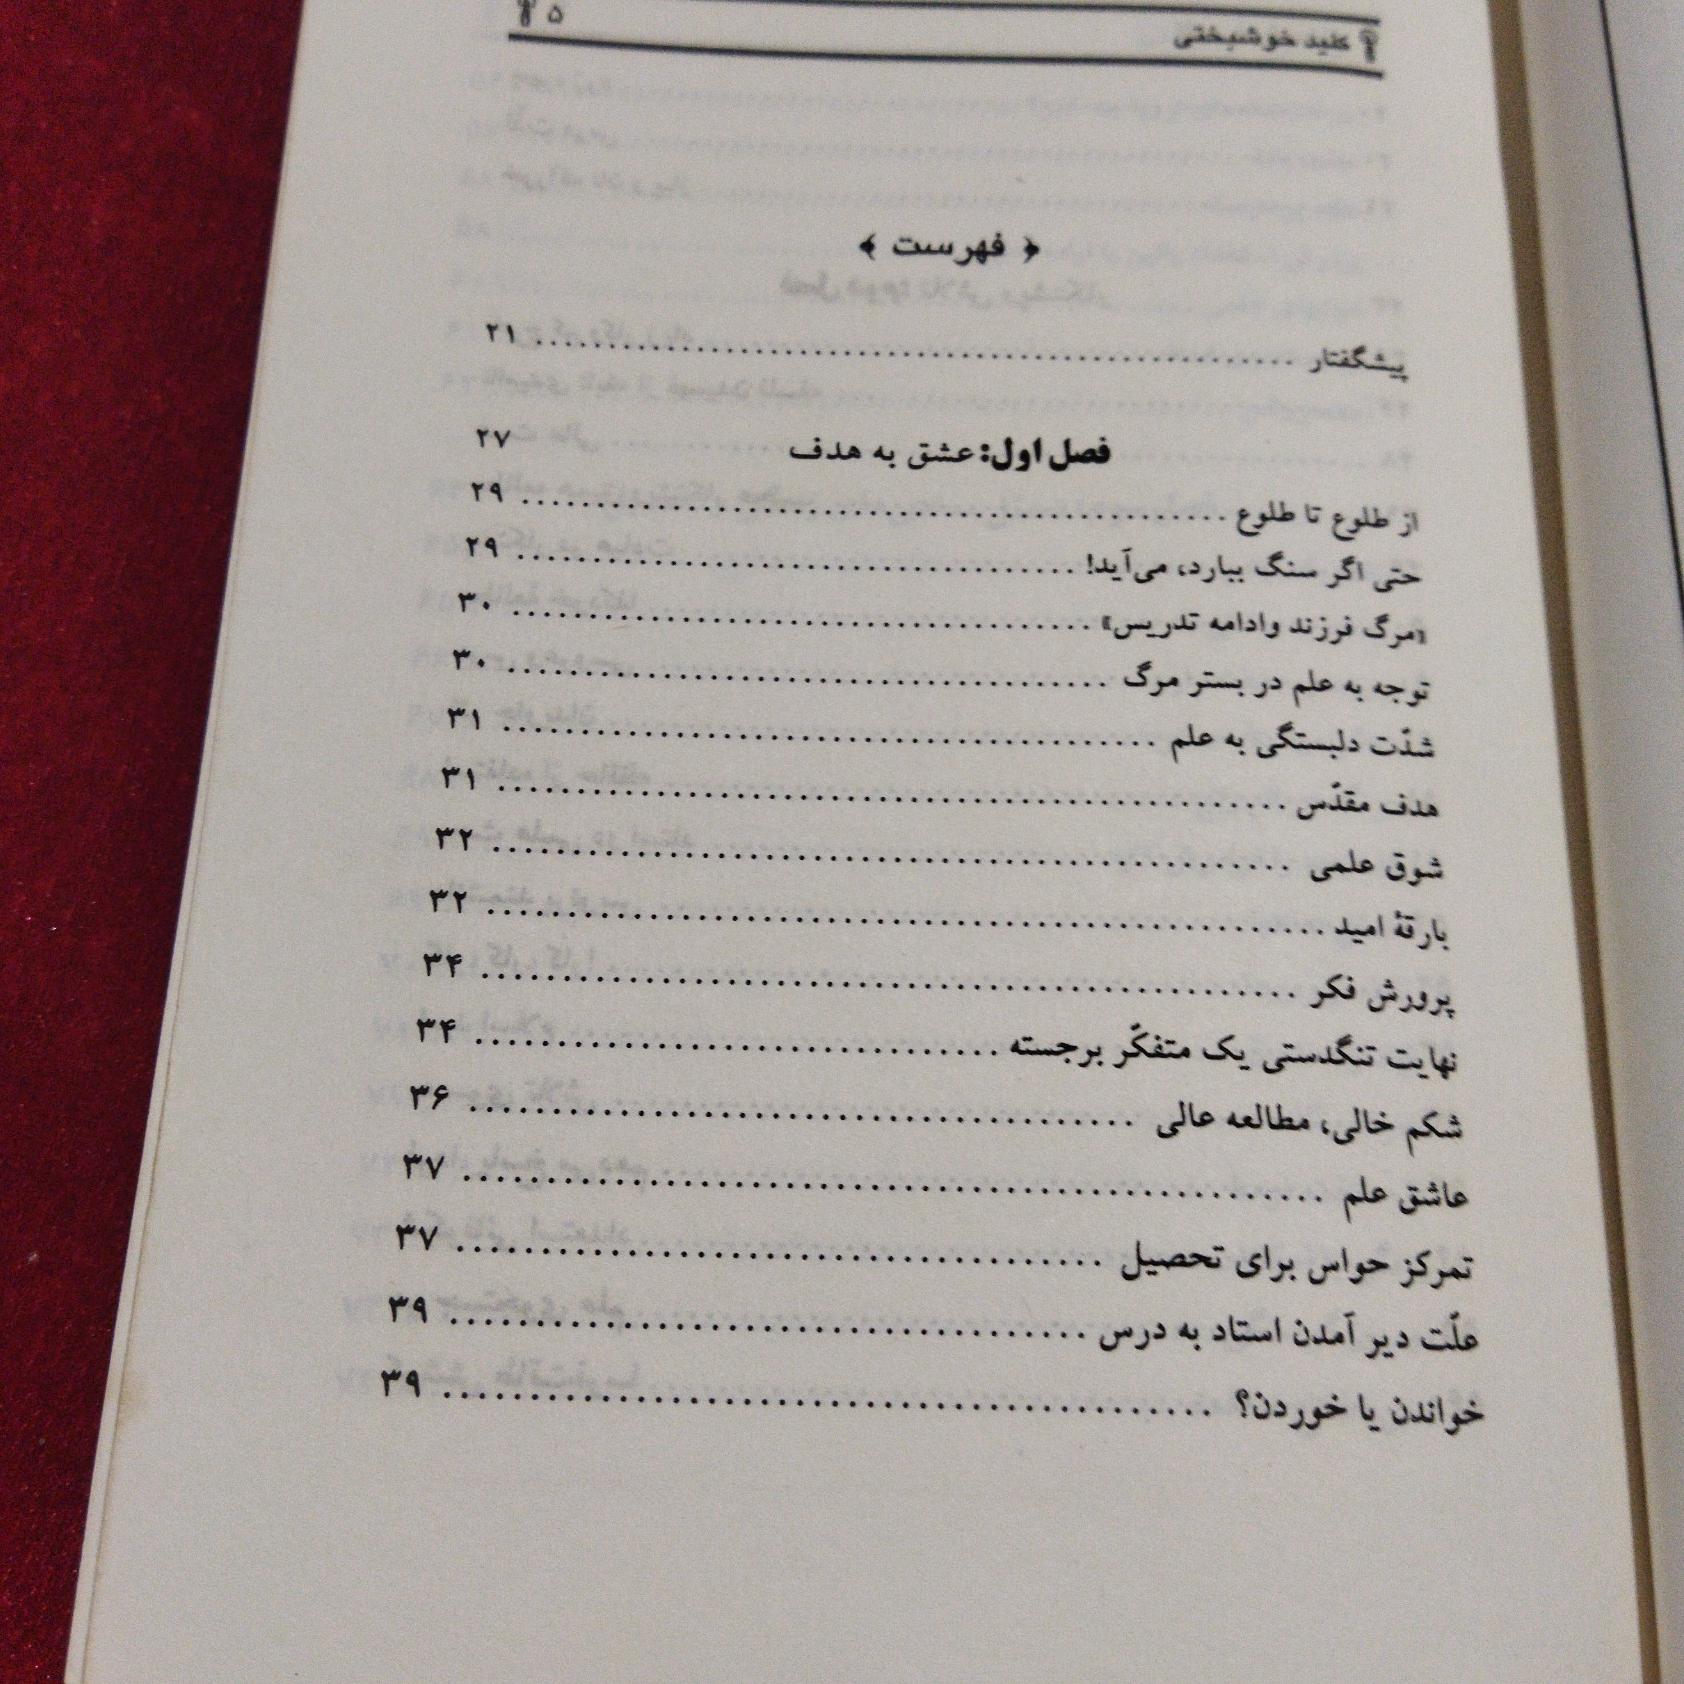 کلید خوشبختی ۵
﴿ فهرست ﴾
پیشگفتار ........ ۲۱
فصل اول: عشق به هدف ۲۷
از طلوع تا طلوع ........ ۲۹
حتی اگر سنگ ببارد، می‌آید! ........ ۲۹
«مرگ فرزند وادامه تدریس» ........ ۳۰
توجه به علم در بستر مرگ ........ ۳۰
شدّت دلبستگی به علم ........ ۳۱
هدف مقدّس ........ ۳۱
شوق علمی ........ ۳۲
بارقهٔ امید ........ ۳۲
پرورش فکر ........ ۳۴
نهایت تنگدستی یک متفکّر برجسته ........ ۳۴
شکم خالی، مطالعه عالی ........ ۳۶
عاشق علم ........ ۳۷
تمرکز حواس برای تحصیل ........ ۳۷
علّت دیر آمدن استاد به درس ........ ۳۹
خواندن یا خوردن؟ ........ ۳۹